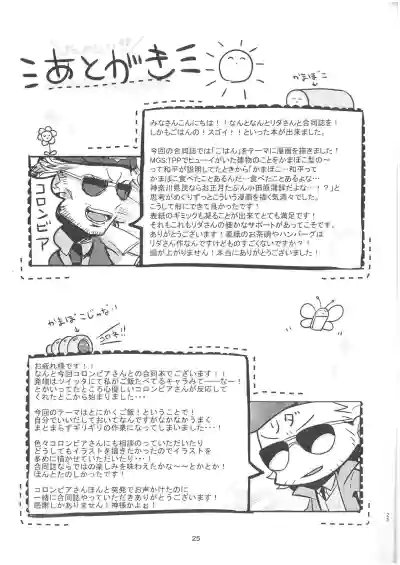 あとがき
かまぼこ
みなさんこんにちは！！なんとなんとリダさんと合同誌を！
しかもごはんの！スゴイ！！といった本が出来ました！
今回の合同誌では「ごはん」をテーマに漫画を描きました！
MGS:TPPでヒューイがいた建物のことをかまぼこ型の〜
って和平が説明してたときから「かまぼこ…和平って
かまぼこ食べたことあるんだ…食べたことあるよな…
神奈川県民ならお正月たぶん小田原蒲鉾だよな…！？」と
思考がめぐりずっとこういう漫画を描く気満々でした。
こうして形にできて良かったです！
表紙のギミックも凝ることが出来てとても満足です！
それもこれもリダさんの健かなサポートがあってこそです。
ありがとうございます！裏紙のお茶碗やハンバーグは
リダさん作なんですけどものすごくないですか？！
頭が上がりません！本当にありがとうございました！
コロンビア
かまぼこじゃない
コロネ!!
お疲れ様です！！
なんと今回コロンビアさんとの合同本でございます！！
発端はツイッタにて私がご飯たべてるキャラみて――なー！
とかいってたところ心優しいコロンビアさんが反応して
くれたとこから始まりました…
今回のテーマはとにかくご飯！ということで！
自分でいいだしておいてなんですがなかなかうまく
まとまらずギリギリの作業になってしまいました…！
色々コロンビアさんにも相談のっていただいたり
どうしてもイラストを描きたかったのでイラストを
多めに描かせていただいたり・・・！
合同誌ならではの楽しみを味わえたかな〜〜とかとか！
ほんとたのしかったです！
コロンビアさんほんと突発でお声かけたのに
一緒に合同誌やっていただきありがとうございます！
感謝しかありません！神様かよぉ！
リダ
25